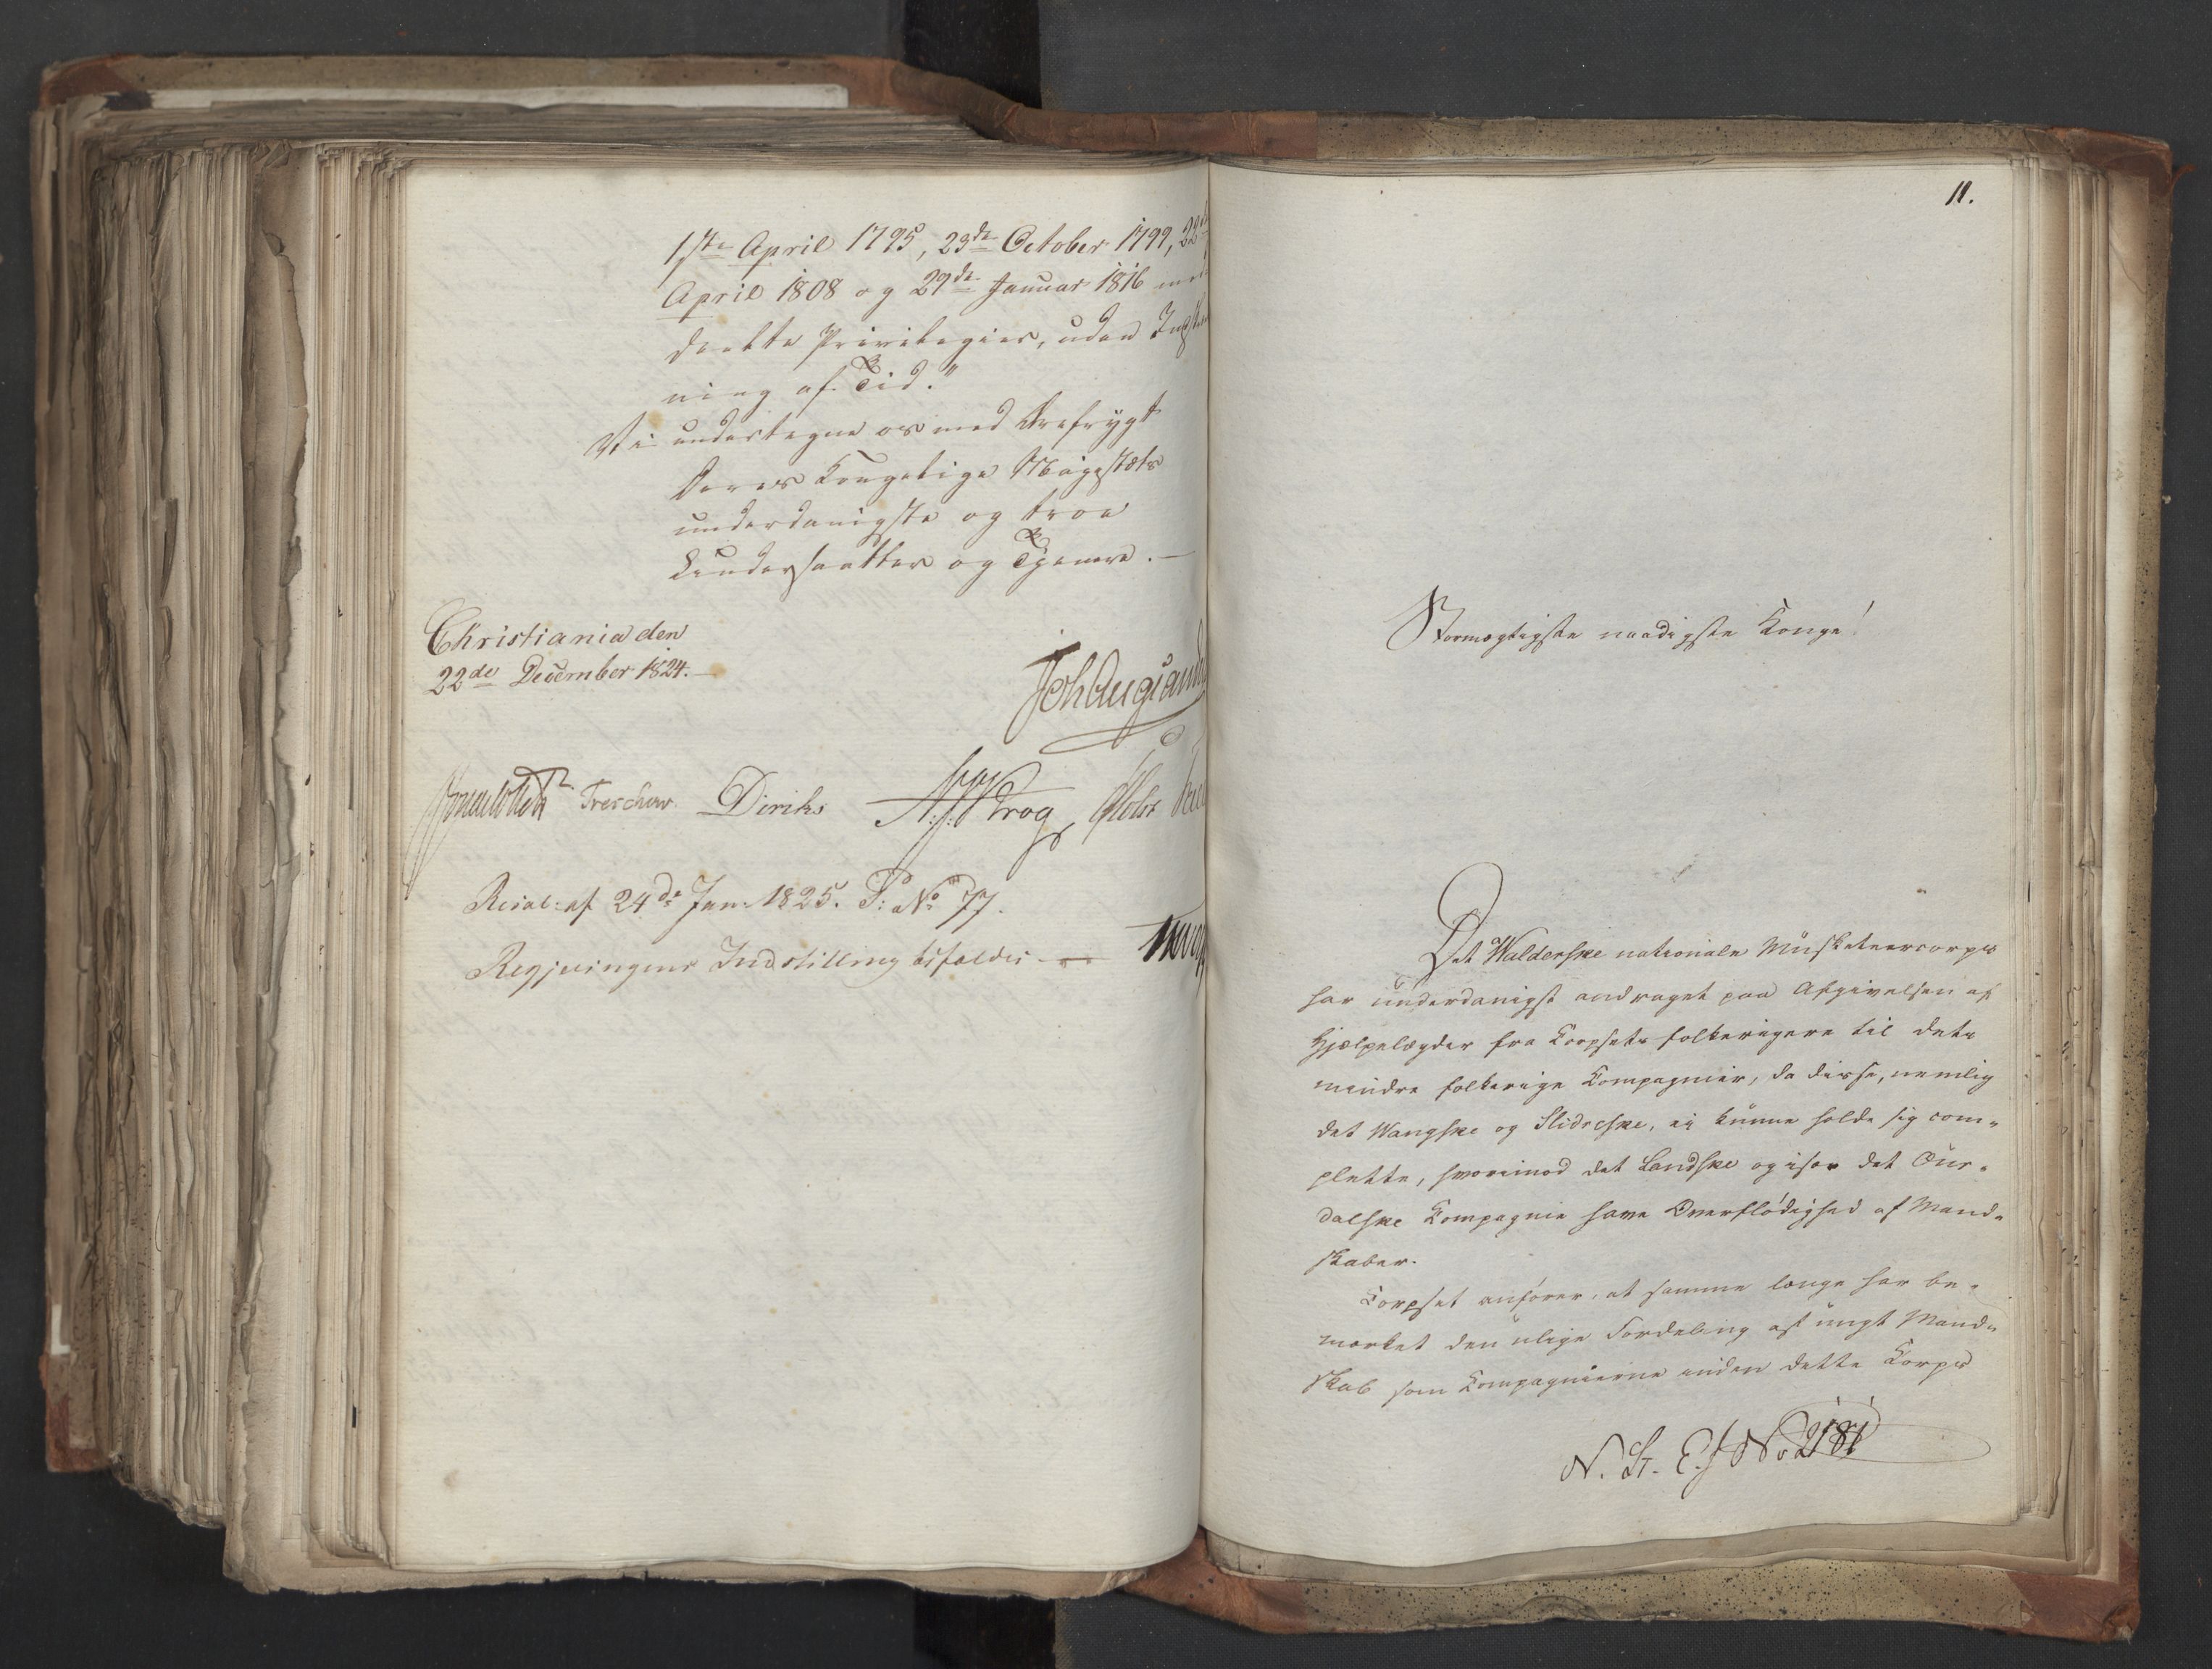 1ste April 1795, 23de October 1799, 22de
April 1808 og 29de Januar 1816 med
deelte Privilegier, uden
ning af Tid."
Vi undertegne os med Ærefrygt
Deres Kongelige Majestæts
underdanigste og troe
Undersaatter og Tjenere.
Christiania den
22de December 1824.
Joh Aug Sand
Sommerhielm Treschow Diriks Krog Holst
Resol: af 24de Jan: 1825. P: No 77.
Regjeringens Indstilling bifaldes
11.
Stormægtigste naadigste Konge!
Det Walderske nationale Musketeercorps
har underdanigst andraget paa Afgivelsen af
Hjælpelægder fra Corpsets folkerigere til dets
mindre folkerige Compagnier, da disse, nemlig
det Wangske og Slidreske, ei kunne holde sig com-
plette, hvorimod det Landske og især det Our-
dalske Compagnie have Overflødighed af Mand-
skaber.
Corpset anfører, at samme længe har be-
mærket den ulige Fordeling af ungt Mand-
skab som Compagnierne inden dette Corps
N. St. E. J No 2181